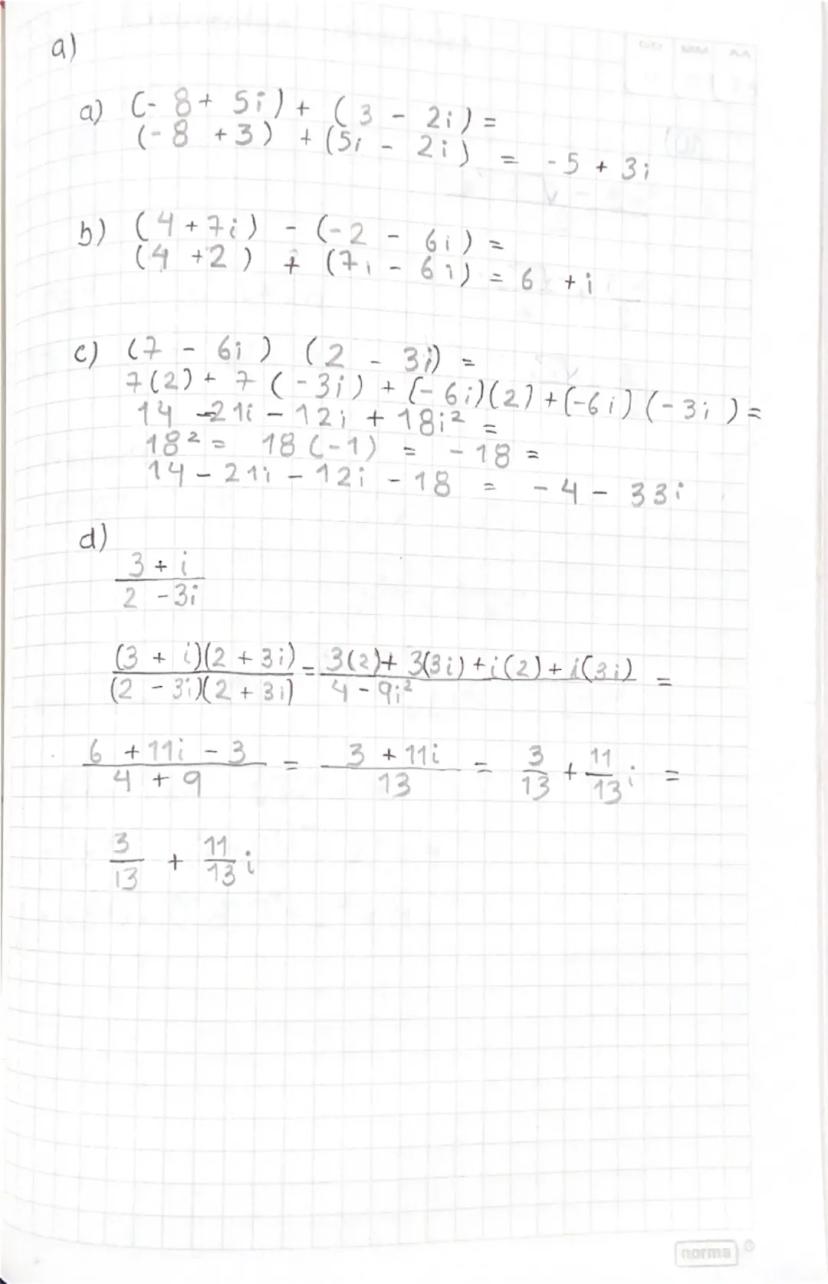 a)
DD MM AA
a) (- 8 + 5i) + (3 - 2i) =
(- 8 + 3) + (5i - 2i) = -5 + 3i
b) (4 + 7i) - (-2 - 6i) =
(4 + 2) + (7i - 6i) = 6 + i
c) (7 - 6i) (2 - 3i) =
7(2) + 7 (-3i) + (-6i)(2) + (-6i) (-3i) =
14 - 21i - 12i + 18i² =
18² = 18 (-1) = -18 =
14 - 21i - 12i - 18 = -4 - 33i
d)
3 + i
2 - 3i
(3 + i)(2 + 3i) = 3(2) + 3(3i) + i(2) + i(3i) =
(2 - 3i)(2 + 3i) 4 - 9i²
6 + 11i - 3 = 3 + 11i = 3 + 11 i =
4 + 9 13 13 13
3 + 11 i
13 13
norma